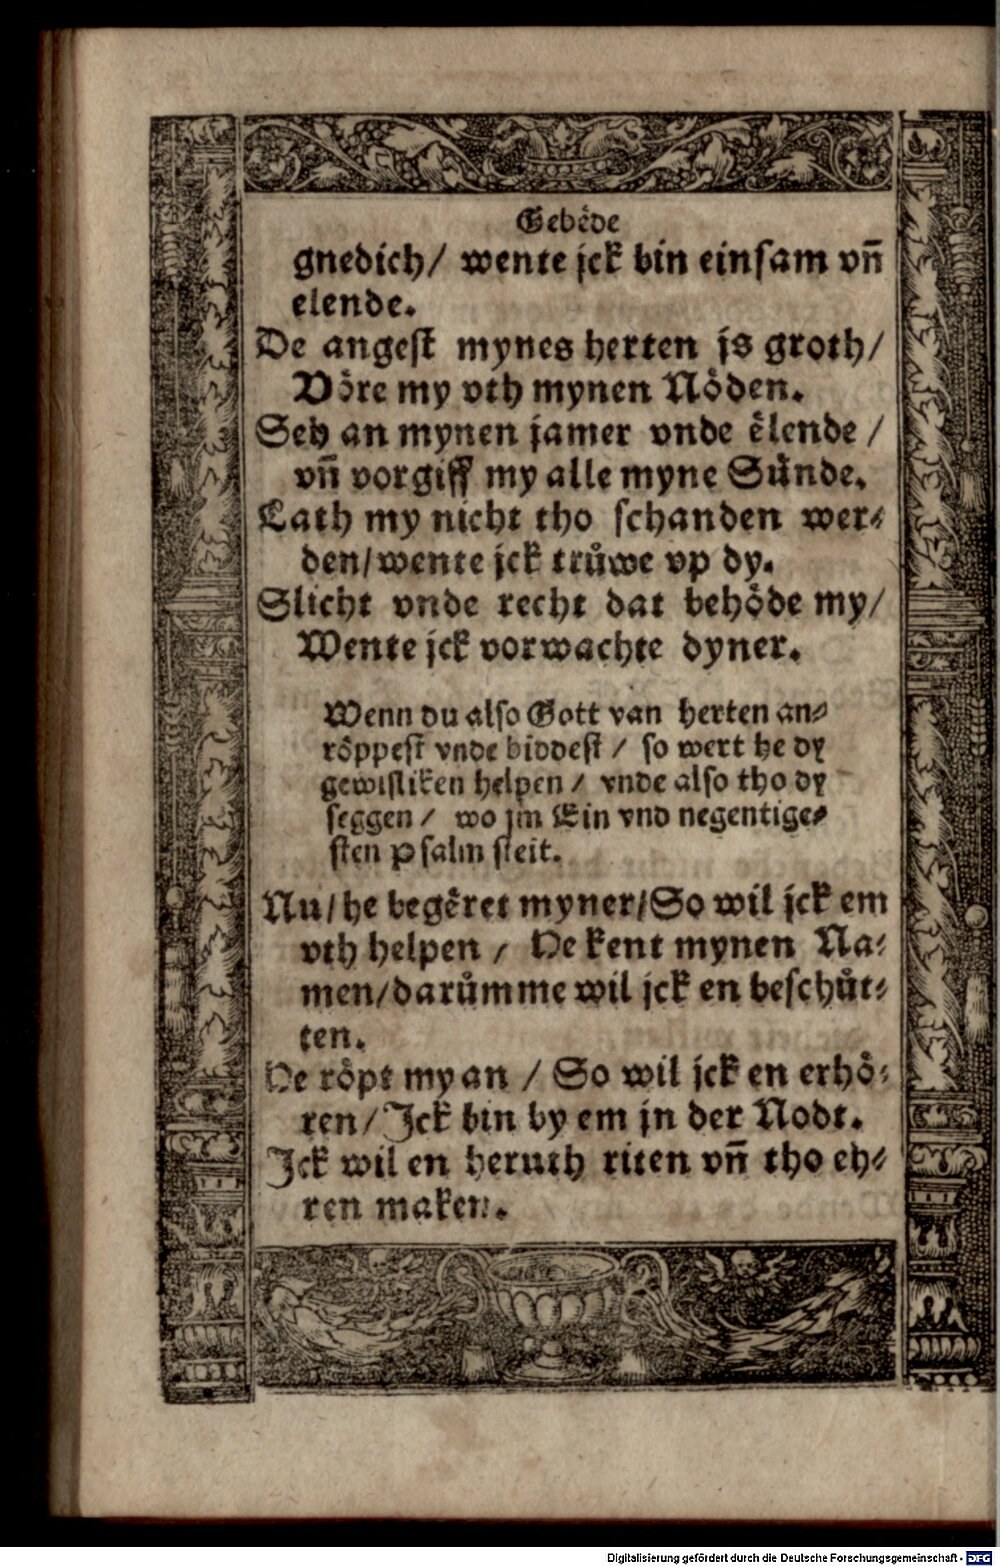 Gebëde
gnedich/ wente jck bin einsam vñ
elende.
De angest mynes herten js groth/
Vöre my vth mynen Nöden.
Seh an mynen jamer vnde ëlende /
vñ vorgiff my alle myne Sünde.
Lath my nicht tho schanden wer⸗
den/wente jck trůwe vp dy.
Slicht vnde recht dat behöde my/
Wente jck vorwachte dyner.
Wenn du also Gott van herten an⸗
röppest vnde biddest / so wert he dy
gewisliken helpen / vnde also tho dy
seggen / wo jm Ein vnd negentige⸗
sten Psalm steit.
Nu/he begëret myner/So wil jck em
vth helpen / He kent mynen Na⸗
men/darůmme wil jck en beschůt⸗
ten.
He röpt my an / So wil jck en erhö⸗
ren/Jck bin by em jn der Nodt.
Jck wil en heruth riten vñ tho eh⸗
ren maken.
Digitalisierung gefördert durch die Deutsche Forschungsgemeinschaft - DFG